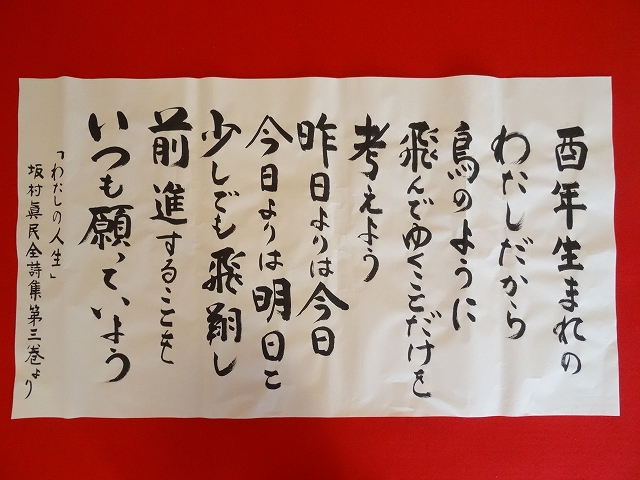 酉年生まれの
わたしだから
鳥のように
飛んでゆくことだけを
考えよう
昨日よりは今日
今日よりは明日と
少しでも飛翔し
前進することを
いつも願っていよう
「わたしの人生」
坂村眞民全詩集第三巻より